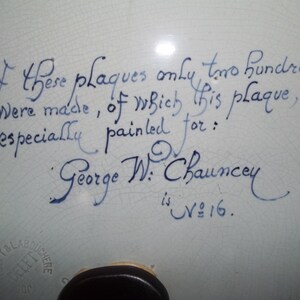 f these plaques only, two hundre
were made, of which this plaque,
especially painted for:
George W. Chauncey
is
No 16.